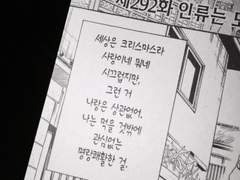 제292화 인류는 모
세상은 크리스마스라
사랑이네 뭐네
시끄럽지만,
그런 거
나랑은 상관없어.
나는 먹을 것밖에
관심없는
명랑쾌활한 걸.